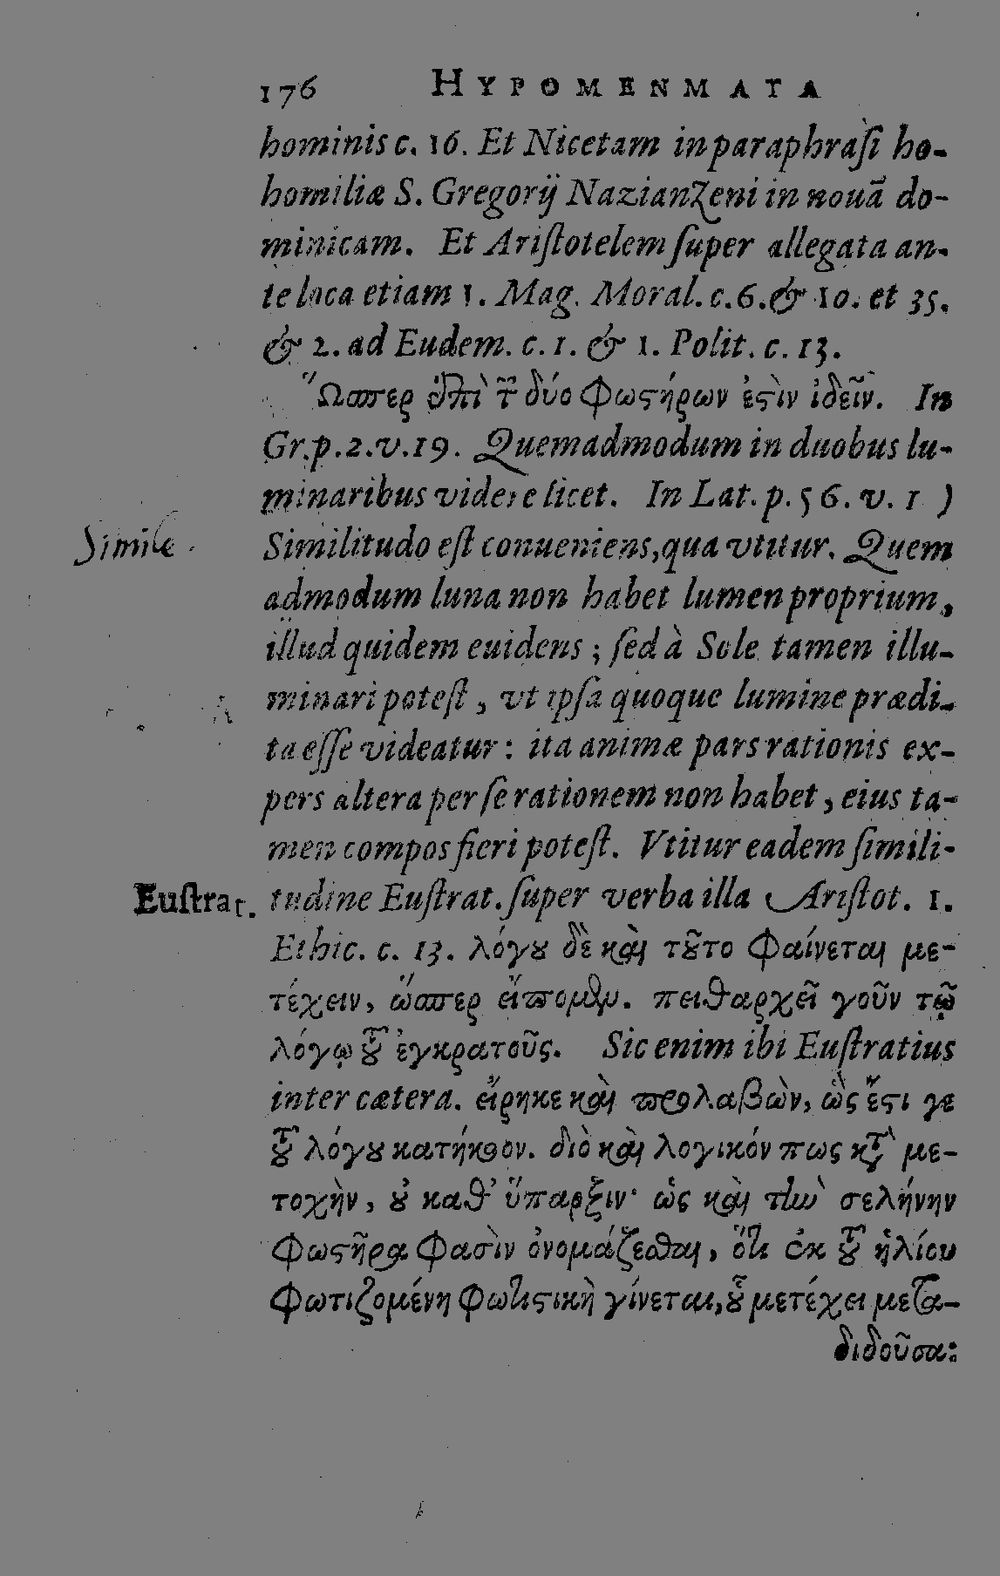 176 HYPOMENMATA
hominis c. 16. Et Nicetam in paraphrasi ho-
homiliæ S. Gregorij Nazianzeni in nouã do-
minicam. Et Aristotelem super allegata an-
te loca etiam 1. Mag. Moral. c. 6. & 10. et 35.
& 2. ad Eudem. c. 1. & 1. Polit. c. 13.
Ὥσπερ ἐπὶ τῶν δύο φωστήρων ἐστὶν ἰδεῖν. In
Gr. p. 2. v. 19. Quemadmodum in duobus lu-
minaribus videre licet. In Lat. p. 56. v. 1 )
Simile
Similitudo est conueniens, qua vtitur. Quem
admodum luna non habet lumen proprium,
illud quidem euidens ; sed à Sole tamen illu-
minari potest , vt ipsa quoque lumine prædi-
ta esse videatur : ita animæ pars rationis ex-
pers altera per se rationem non habet , eius ta-
men compos fieri potest. Vtitur eadem simili-
Eustrat.
tudine Eustrat. super verba illa Aristot. 1.
Ethic. c. 13. λόγου δὲ καὶ τοῦτο φαίνεται με-
τέχειν, ὥσπερ εἴπομεν. πειθαρχεῖ γοῦν τῷ
λόγῳ τοῦ ἐγκρατοῦς. Sic enim ibi Eustratius
inter cætera. εἴρηκε καὶ προλαβὼν, ὡς ἔστι γε
τοῦ λόγου κατήκοον. διὸ καὶ λογικόν πως κατὰ με-
τοχὴν, οὐ καθ’ ὕπαρξιν· ὡς καὶ τὴν σελήνην
φωστῆρα φασὶν ὀνομάζεσθαι, ὅτι ἐκ τοῦ ἡλίου
φωτιζομένη φωτιστικὴ γίνεται, οὗ μετέχει μετα-
διδοῦσα: